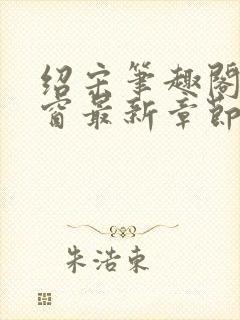 绍宋笔趣阁
窗最新章节
朱浩东